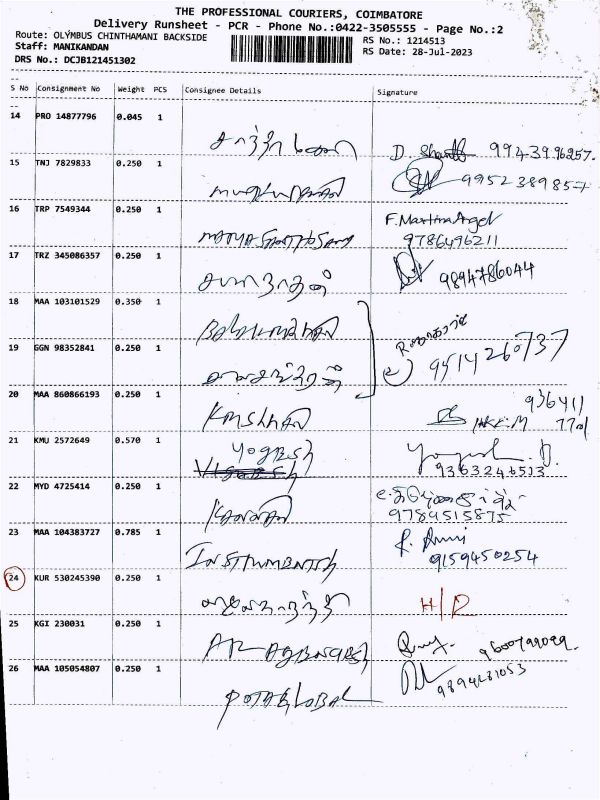 THE PROFESSIONAL COURIERS, COIMBATORE
Delivery Runsheet - PCR - Phone No.:0422-3505555 - Page No.:2
Route: OLYMBUS CHINTHAMANI BACKSIDE
RS No.: 1214513
Staff: MANIKANDAN
RS Date: 28-Jul-2023
DRS No.: DCJB121451302
S No Consignment No Weight PCS Consignee Details Signature
14 PRO 14877796 0.045 1
D. 9943996257.
15 TNJ 7829833 0.250 1
9952389857
16 TRP 7549344 0.250 1
F. Martina Angel
9786496211
17 TRZ 345086357 0.250 1
சபாநாதன்
9894786044
18 MAA 103101529 0.350 1
BALAKUMARAN
19 GGN 98352841 0.250 1
9514260737
20 MAA 860866193 0.250 1
936411
7701
21 KMU 2572649 0.570 1
YOGESH
Yogesh . D.
9363246513
22 MYD 4725414 0.250 1
KANNAN
9789515875
23 MAA 104383727 0.785 1
INSTRUMENTS
9159450254
24 KUR 530245390 0.250 1
H/D
25 KGI 230031 0.250 1
AR AGENCIES
9600799099.
26 MAA 105054807 0.250 1
9894231053